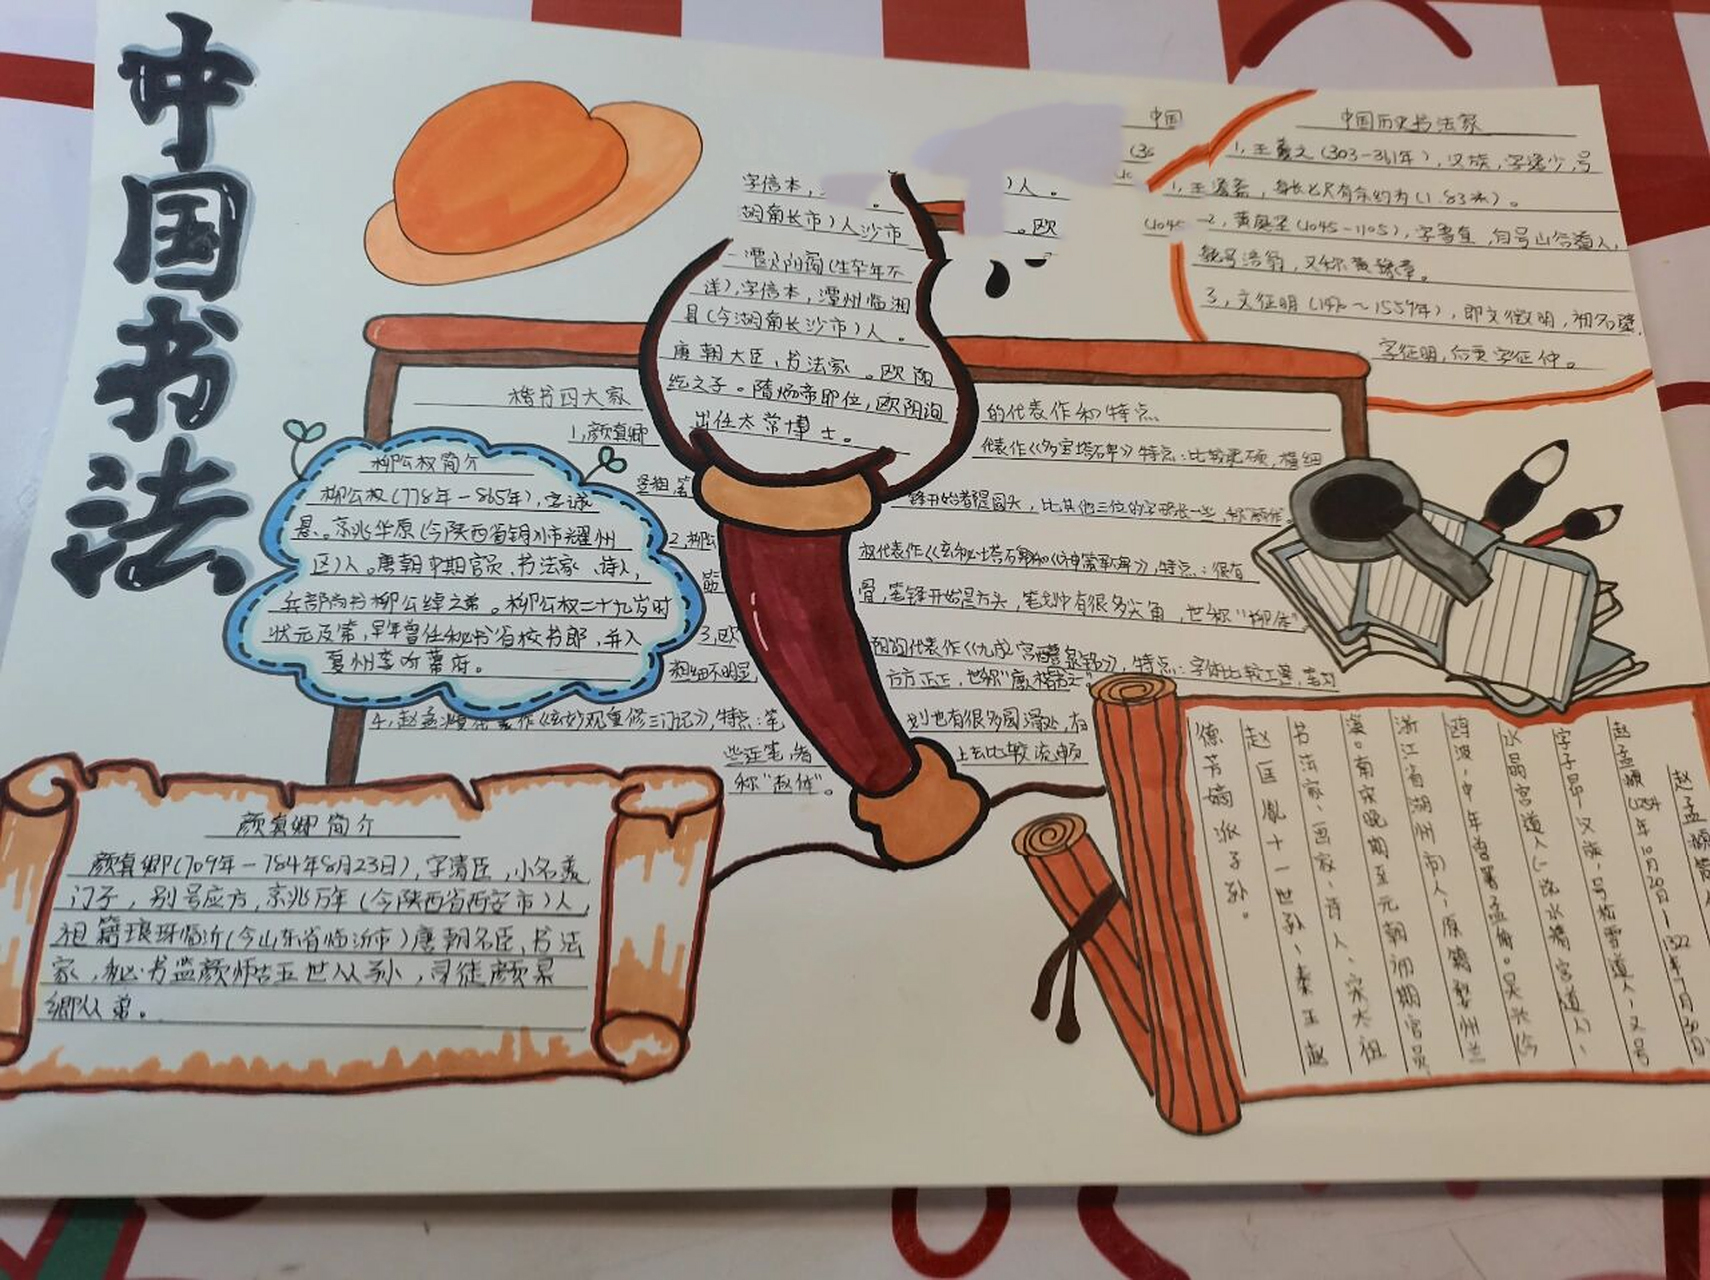 中国书法
字倍本，
）人。
湖南长市）人沙市
。欧
中国
中国历史书法家
1，王羲之（303-361年），汉族，字逸少，号
身长七尺有余约为（1.83米）。
2，黄庭坚（1045-1105），字鲁直，自号山谷道人，
晚号涪翁，又称黄豫章。
3，文征明（1470～1559年），即文徵明，初名壁，
字征明，后更字征仲。
欧阳询（生卒年不
详），字倍本，潭州临湘
县（今湖南长沙市）人。
唐朝大臣，书法家。欧阳
纥之子。隋炀帝即位，欧阳询
出任太常博士。
楷书四大家
的代表作和特点
1，颜真卿
代表作《多宝塔碑》特点：比较柔顺，横细
竖粗，笔
锋开始都是圆头，比其他三位的字略长一些，称"颜体"。
2，柳公
权代表作《玄秘塔碑》和《神策军碑》，特点：很有
筋
骨，笔锋开始是方头，笔划中有很多尖角，世称"柳体"。
3，欧
阳的代表作《九成宫醴泉铭》，特点：字体比较工整，笔划
粗细不明显
方方正正，世称"唐楷第一"。
4，赵孟頫代表作《玄妙观重修三门记》，特点：笔
划也有很多圆滑处，有
些连笔，看
上去比较流畅
称"赵体"。
柳公权简介
柳公权（778年-865年），字诚
悬。京兆华原（今陕西省铜川市耀州
区）人。唐朝中期官员、书法家、诗人，
兵部尚书柳公绰之弟。柳公权二十九岁时
状元及第，早年曾任秘书省校书郎，并入
夏州李听幕府。
颜真卿简介
颜真卿（709年-784年8月23日），字清臣，小名羡
门子，别号应方，京兆万年（今陕西省西安市）人，
祖籍琅玡临沂（今山东省临沂市）唐朝名臣、书法
家，秘书监颜师古五世从孙，司徒颜杲
卿从弟。
赵孟頫简
赵孟頫（1254年10月20日-1322年7月30日）
字子昂，汉族，号松雪道人，又号
水晶宫道人（一说水精宫道人），
鸥波，中年曾署孟俯。吴兴（今
浙江省湖州市）人，原籍婺州兰
溪。南宋晚期至元朝初期官员
书法家、画家、诗人，宋太祖
赵匡胤十一世孙、秦王赵
德芳嫡派子孙。